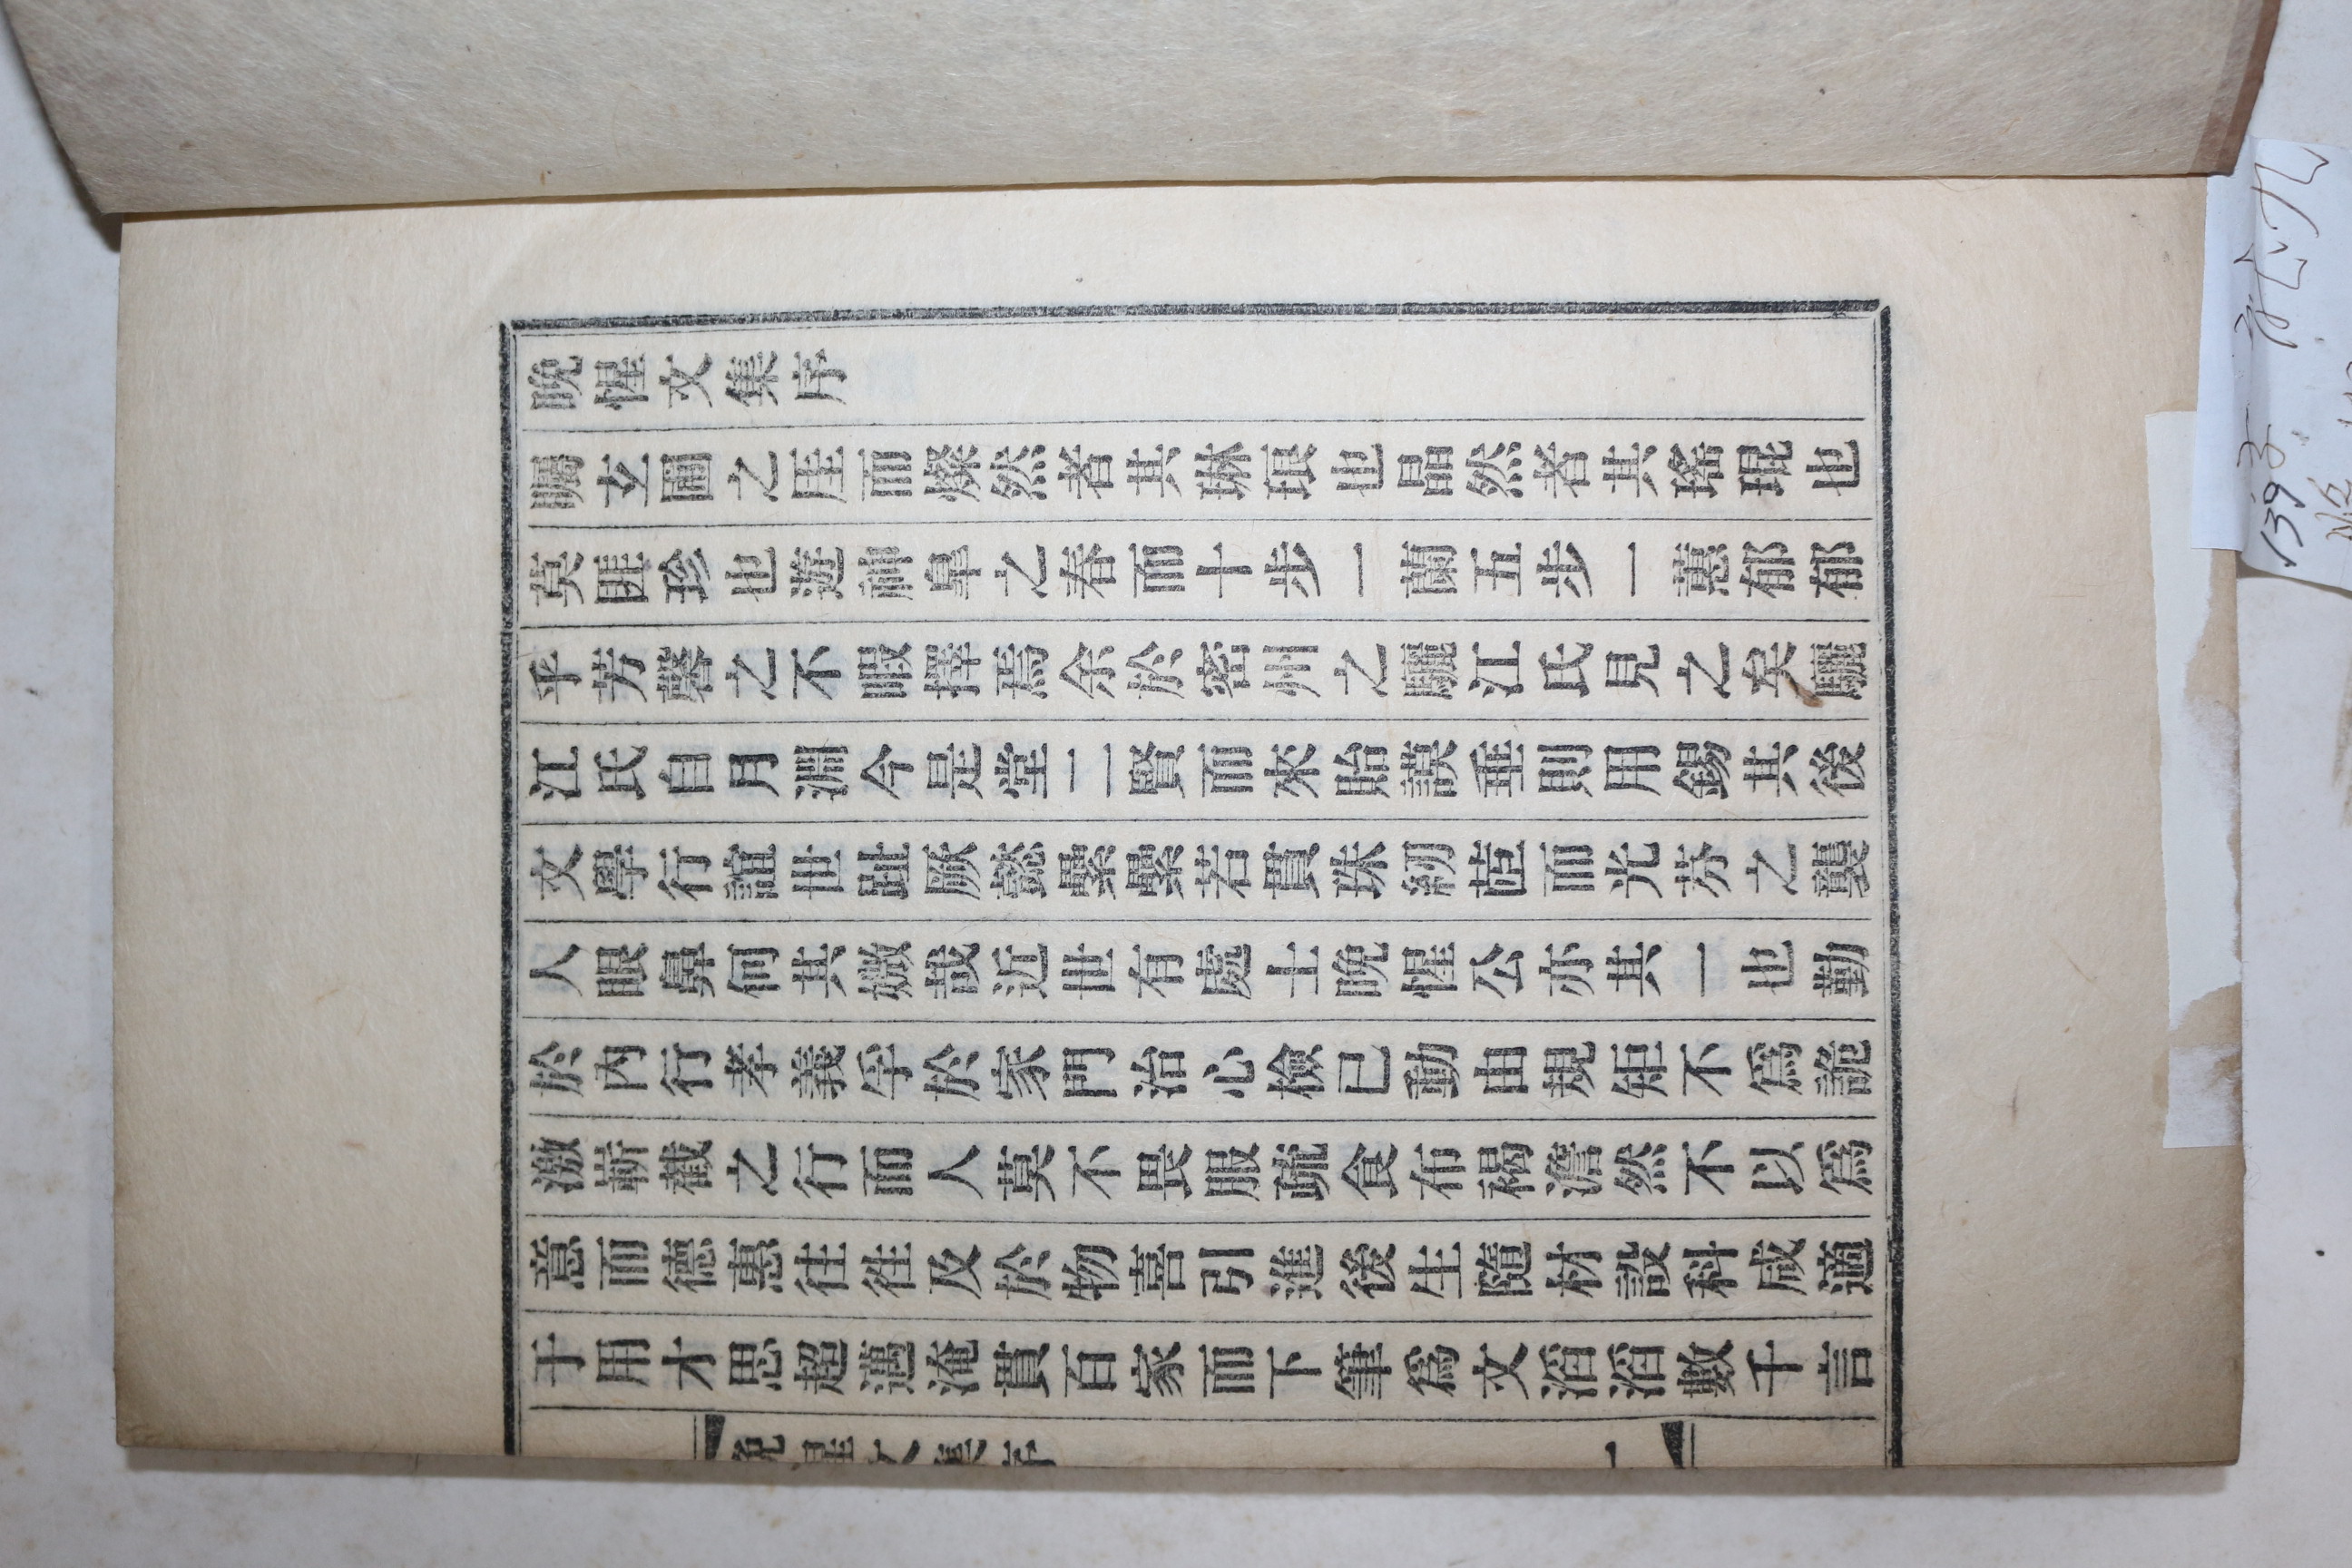 晩惺文集序
矚玄圃之厓而燦然者其琳琅也晶然者其瑤琨也
莫匪珍也遊神皐之春而十步一蘭五步一蕙郁郁
乎芳馨之不暇擇焉余於密州之驪江氏見之矣驪
江氏自月淵今是堂二賢而來貽謨垂則用錫其後
文學行誼世趾厥懿纍纍若貫珠紉茝而光芬之襲
人眼鼻何其媺哉近世有處士晩惺公亦其一也勤
於內行孝義孚於家門治心檢已動由規矩不爲詭
激嶄截之行而人莫不畏服疏食布褐澹然不以爲
意而德惠往往及於物喜引進後生隨材設科咸適
于用才思超邁淹貫百家而下筆爲文滔滔數千言
晩惺文集序
一
139
九